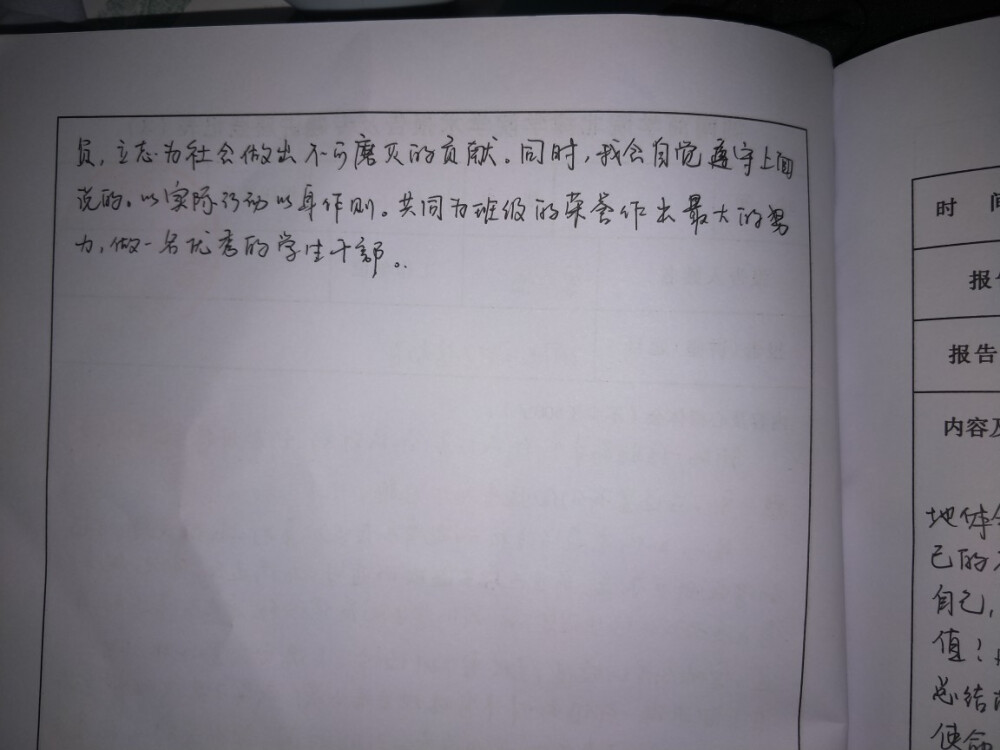 员，立志为社会做出不可磨灭的贡献。同时，我会自觉遵守上面
说的。以实际行动以身作则。共同为班级的荣誉作出最大的努
力，做一名优秀的学生干部。
时 间
报告
报告
内容及
地体会
己的
自己，
值！
总结
使命